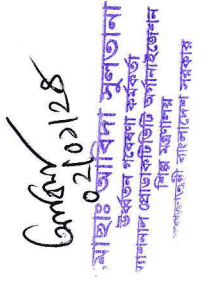 ০২/০১/২৪
মোছাঃ আবিদা সুলতানা
উর্ধ্বতন গবেষণা কর্মকর্তা
ন্যাশনাল প্রোডাকটিভিটি অর্গানাইজেশন
শিল্প মন্ত্রণালয়
গণপ্রজাতন্ত্রী বাংলাদেশ সরকার